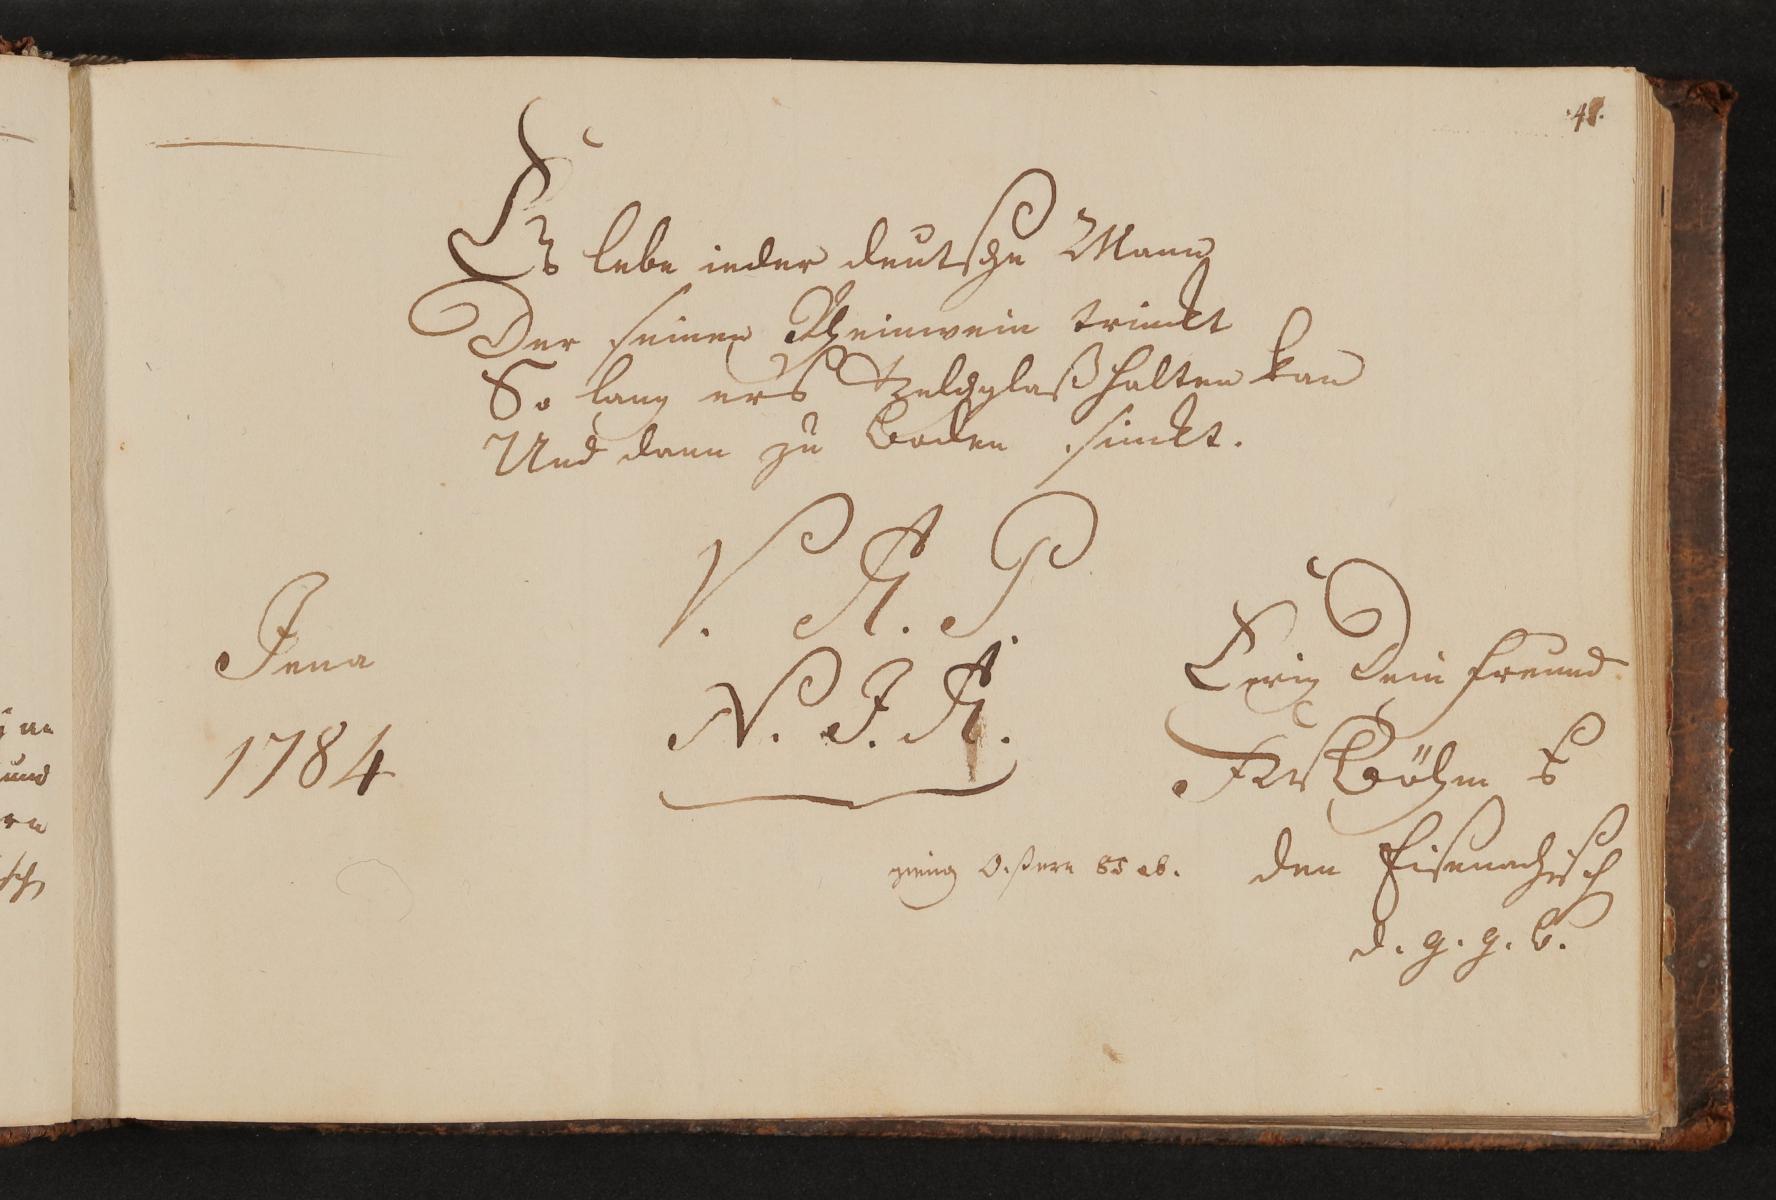 41.
Es lebe ieder deutsche Mann
Der seinen Rheinwein trinckt
So lang ers Kelchglaß halten kan
Und dann zu Boden sinckt.
V. A. P.
N. J. A.
Jena
1784
Ewig Dein Freund
Böhm
den Eisenachisch
gieng Ostern 85 ab.
d. g. g. b.